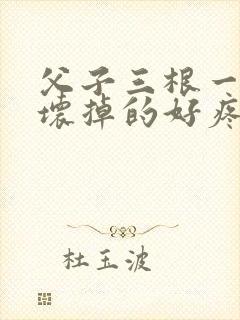 父子三根一
壞掉的好疼
杜玉波